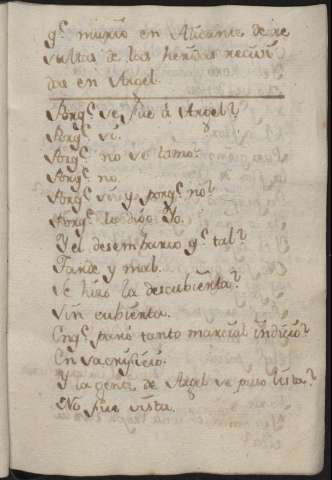 q.e murio en Alicante de re
sultas de las heridas recivi
das en Argel.
Porq.e se fue à Argel?
Porq.e si.
Porq.e no se tomo?
Porq.e no.
Porq.e si y porq.e no?
Porq.e lo dijo Yo.
Y el desembarco q.e tal?
Tarde y mal.
se hizo la descubierta?
sin cubierta.
Enq.e paró tanto marcial indicio?
En sacrificio.
Y la gente de Argel se puso lista?
No fue vista.